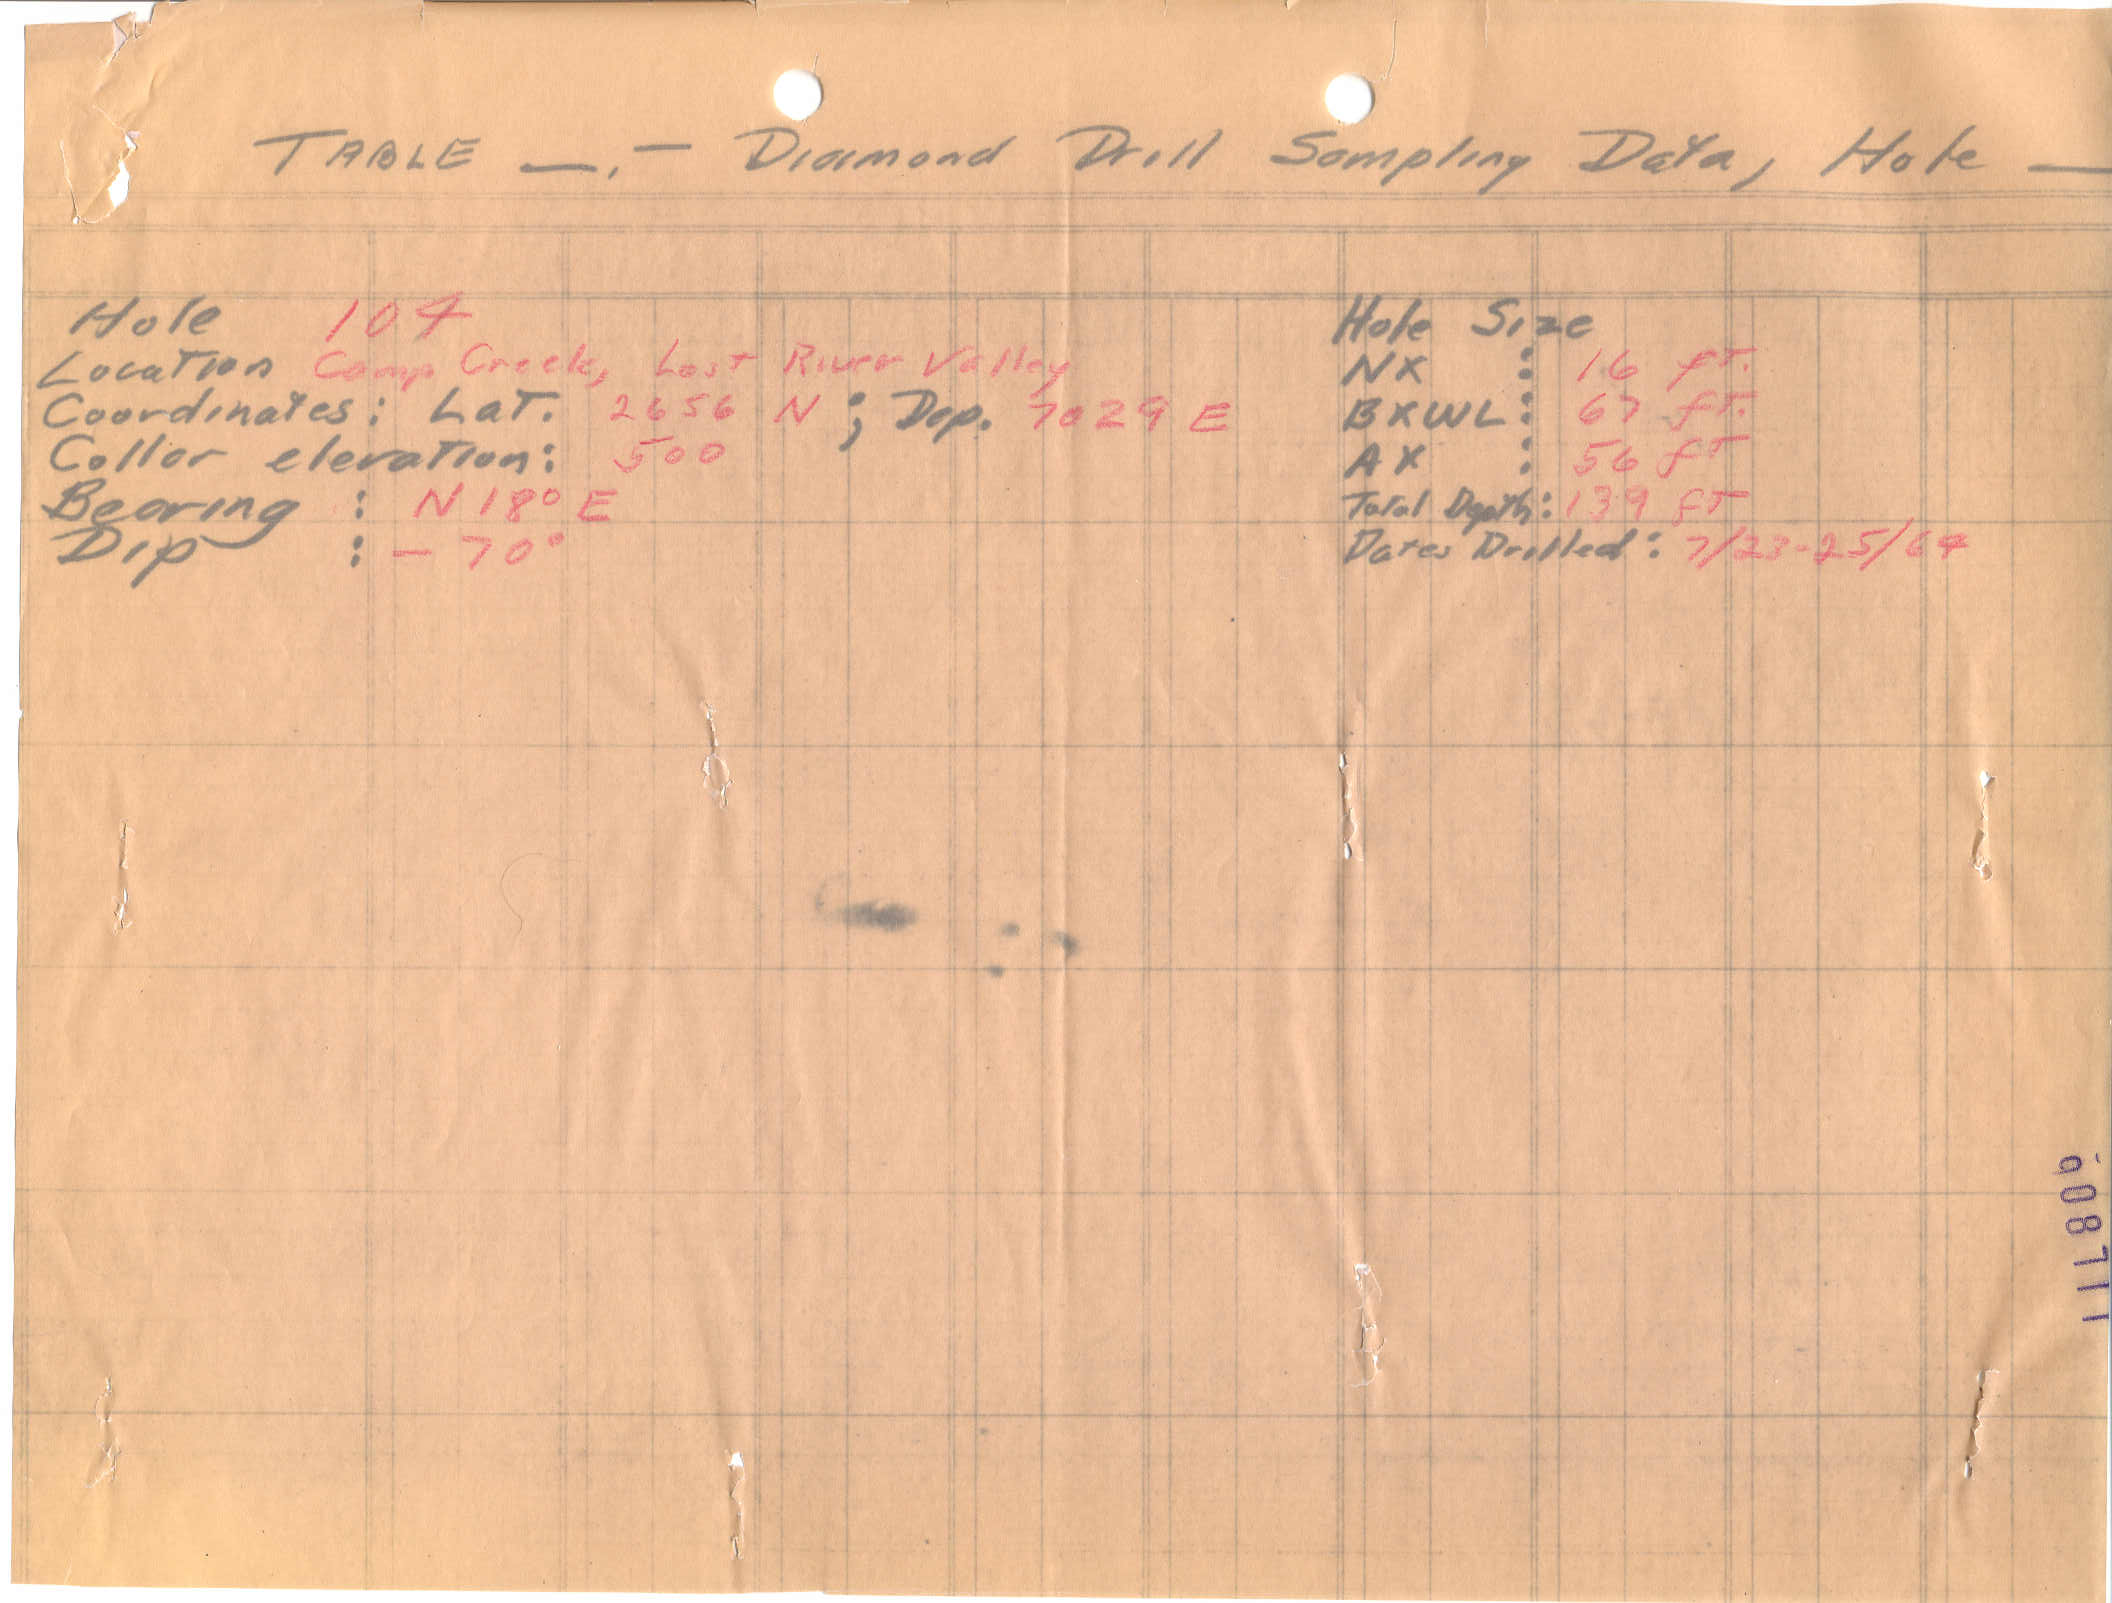 TABLE —.— Diamond Drill Sampling Data, Hole —
Hole 104
Location Camp Creek, Lost River Valley
Coordinates: Lat. 2656 N ; Dep. 7029 E
Collar elevation: 500
Bearing : N 18° E
Dip : - 70°
Hole Size
NX : 16 ft.
BXWL : 67 ft.
AX : 56 ft
Total Depth: 139 ft
Dates Drilled: 7/23-25/64